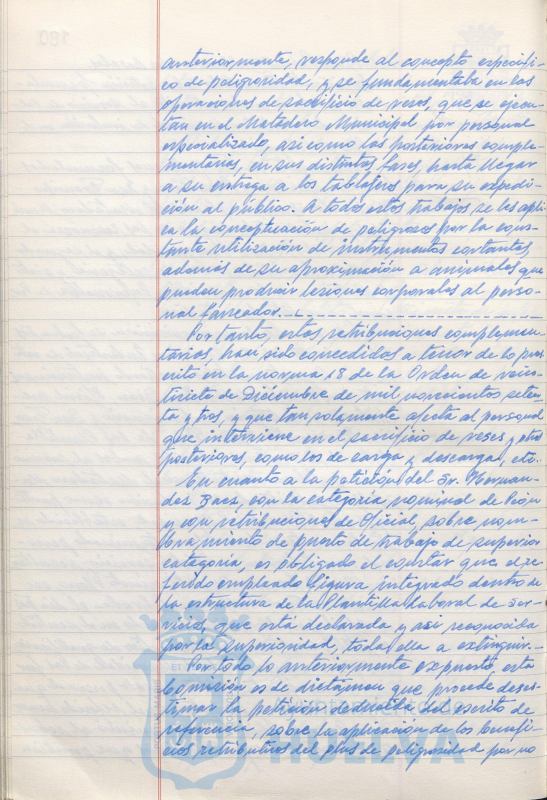 anteriormente, responde al concepto específi-
co de peligrosidad, y se fundamentaba en las
operaciones de sacrificio de reses, que se ejecu-
tan en el Matadero Municipal por personal
especializado, asi como las posteriores comple-
mentarias, en sus distintas fases, hasta llegar
a su entrega a los tablajeros para su expedi-
ción al público. A todos estos trabajos se les apli-
ca la conceptuación de peligrosos por la cons-
tante utilización de instrumentos cortantes,
además de su aproximación a animales que
pueden producir lesiones corporales al perso-
nal faenador.-
Por tanto, estas retribuciones complemen-
tarias, han sido concedidas a tenor de lo pres-
crito en la norma 18 de la Orden de vein-
tisiete de Diciembre de mil novecientos seten-
ta y tres, y que tan solamente afecta al personal
que interviene en el sacrificio de reses y otros
posteriores, como los de carga y descarga, etc.-
En cuanto a la petición del Sr. Hernan-
dez Baez, con la categoría nominal de Peón
y con retribuciones de Oficial, sobre nom-
bramiento de puesto de trabajo de superior
categoría, es obligado el contar que el re-
ferido empleado figura integrado dentro de
la estructura de la Plantilla Laboral de Ser-
vicios, que está declarada y asi reconocida
por la superioridad, toda ella a extinguir.-
Por todo lo anteriormente expuesto, esta
Comisión es de dictámen que procede deses-
timar la petición deducida del escrito de
referencia, sobre la aplicación de los benefi-
cios retributivos del plus de peligrosidad por no